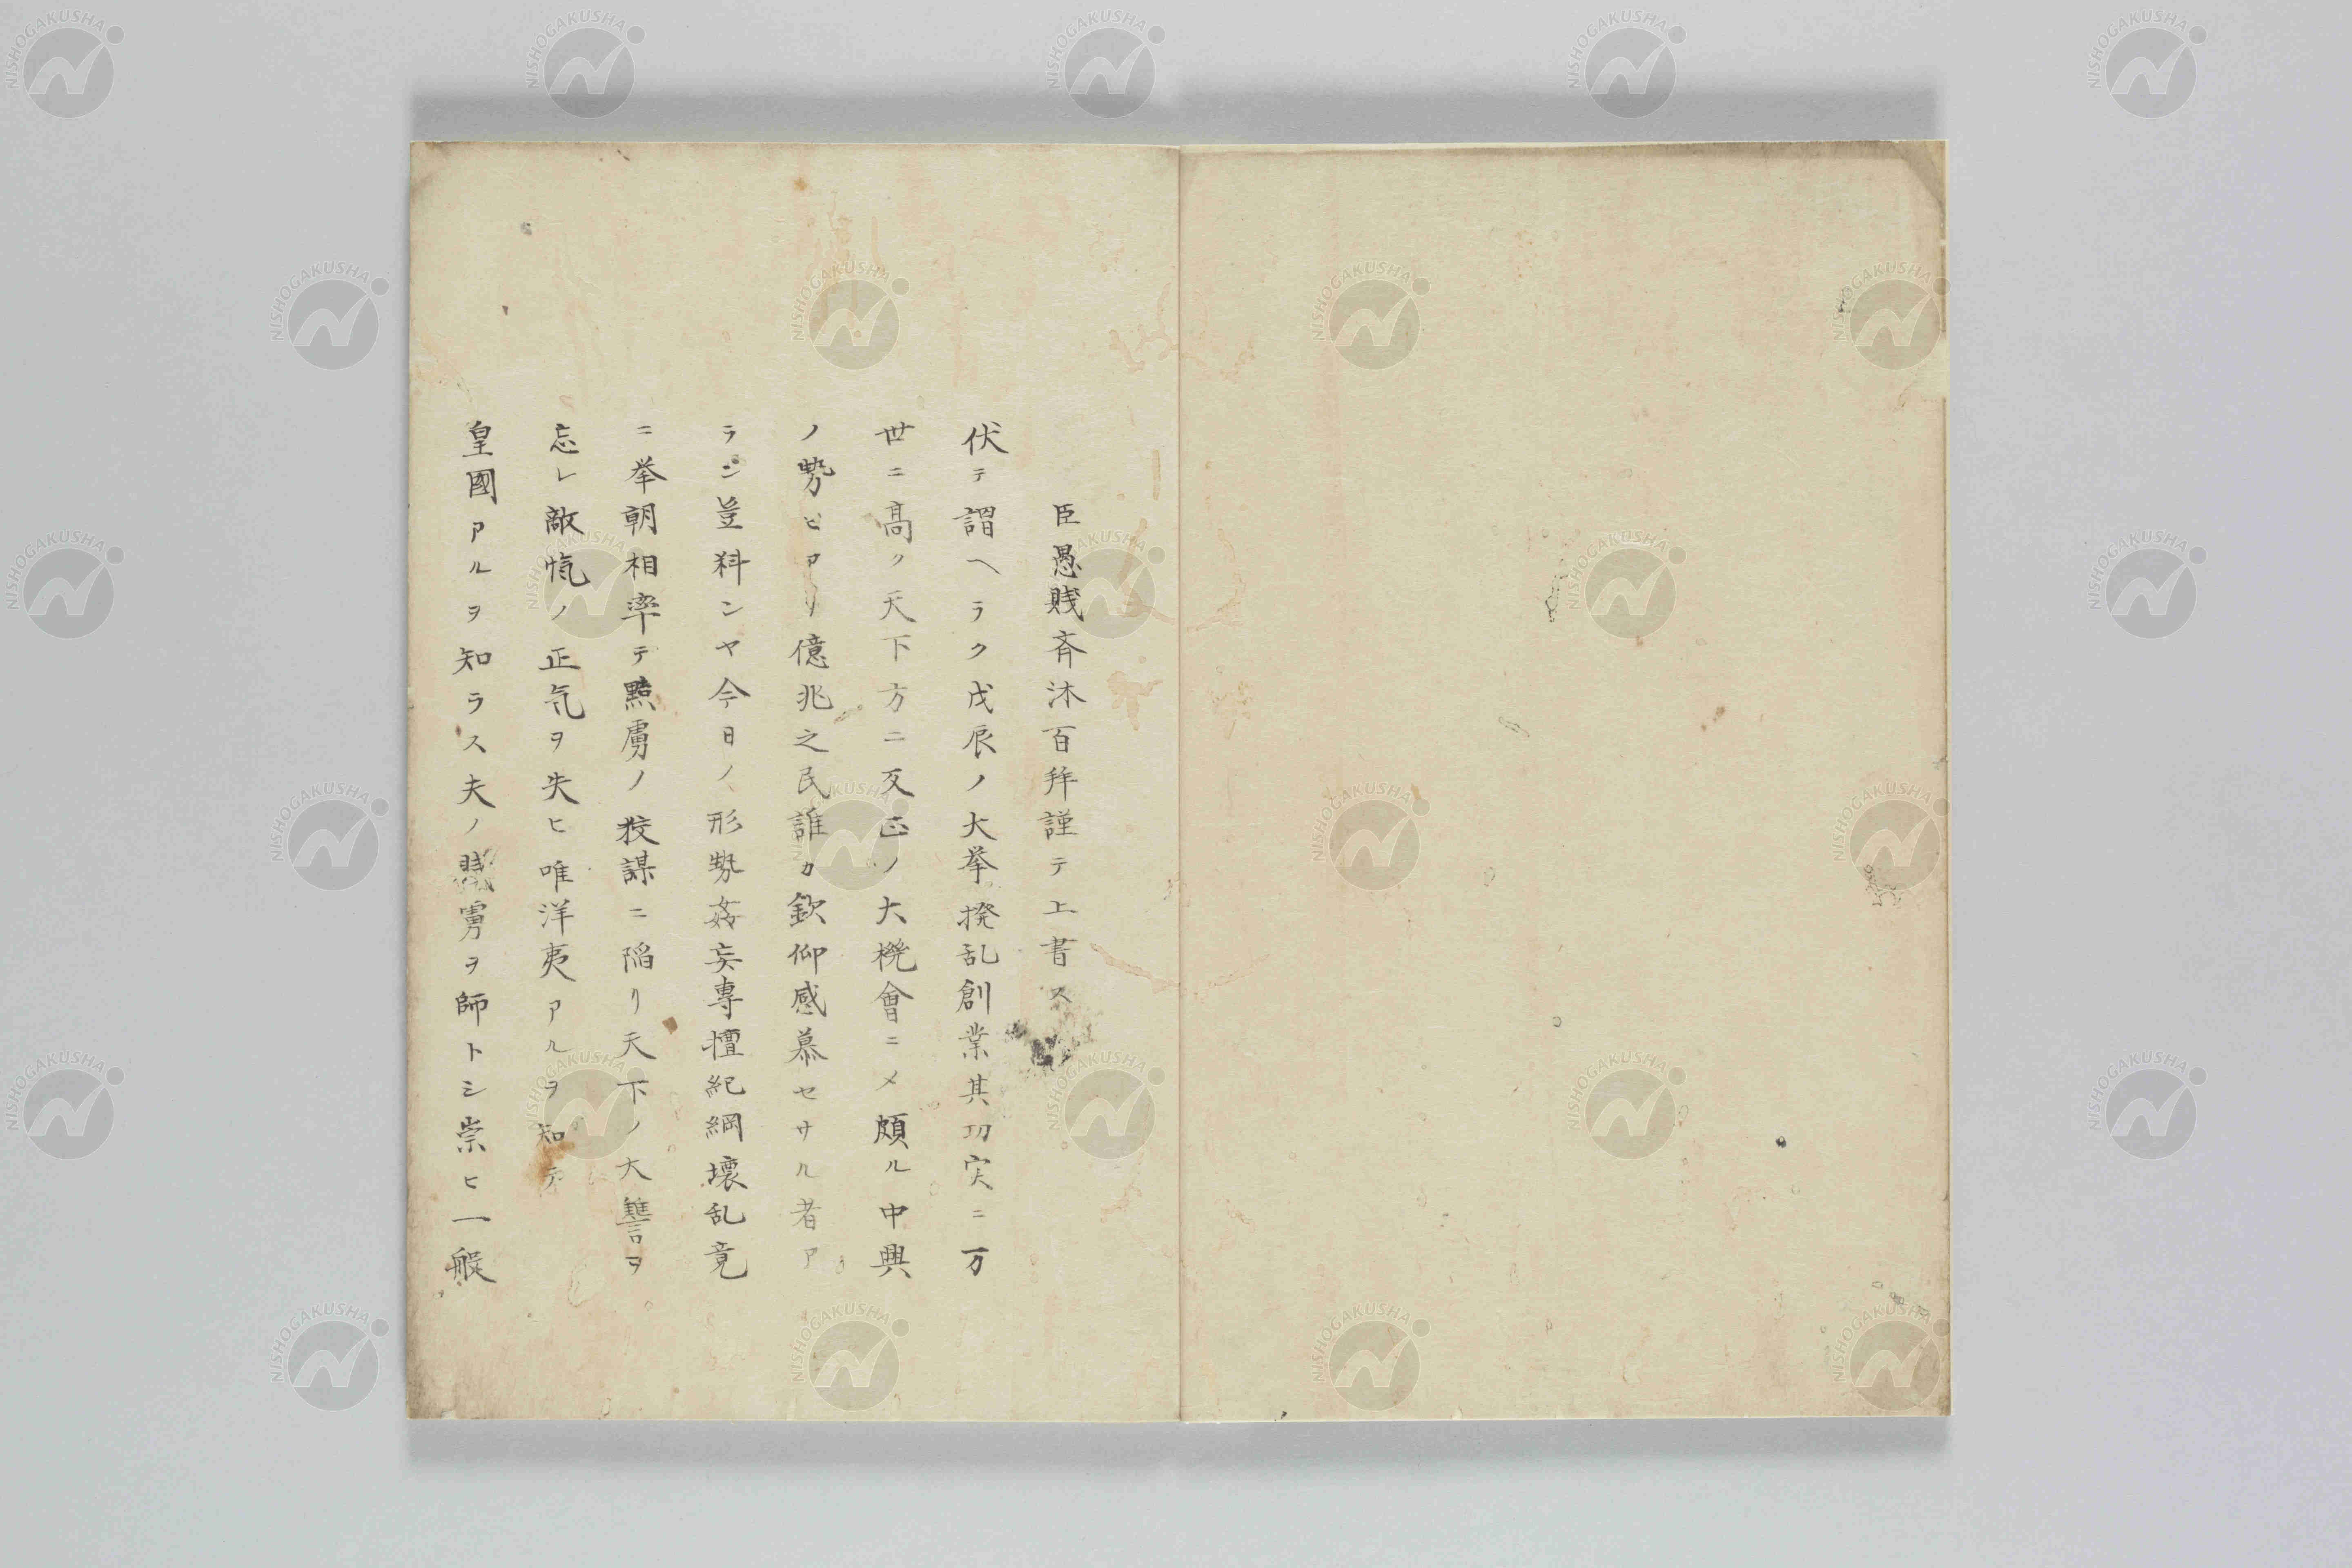 臣愚賤斉沐百拜謹テ上書ス
伏テ謂ヘラク戊辰ノ大挙撥乱創業其功実ニ万
世ニ高ク天下方ニ反正ノ大機會ニメ頗ル中興
ノ勢ヒアリ億兆之民誰カ欽仰感慕セサル者ア
ラジ豈料ンヤ今日ノ形勢姦妄專擅紀綱壞乱竟
ニ挙朝相率テ黠虜ノ狡謀ニ陥リ天下ノ大讐ヲ
忘レ敵愾ノ正気ヲ失ヒ唯洋夷アルヲ知テ
皇國アルヲ知ラス夫ノ虜ヲ師トシ崇ヒ一般
NISHOGAKUSHA